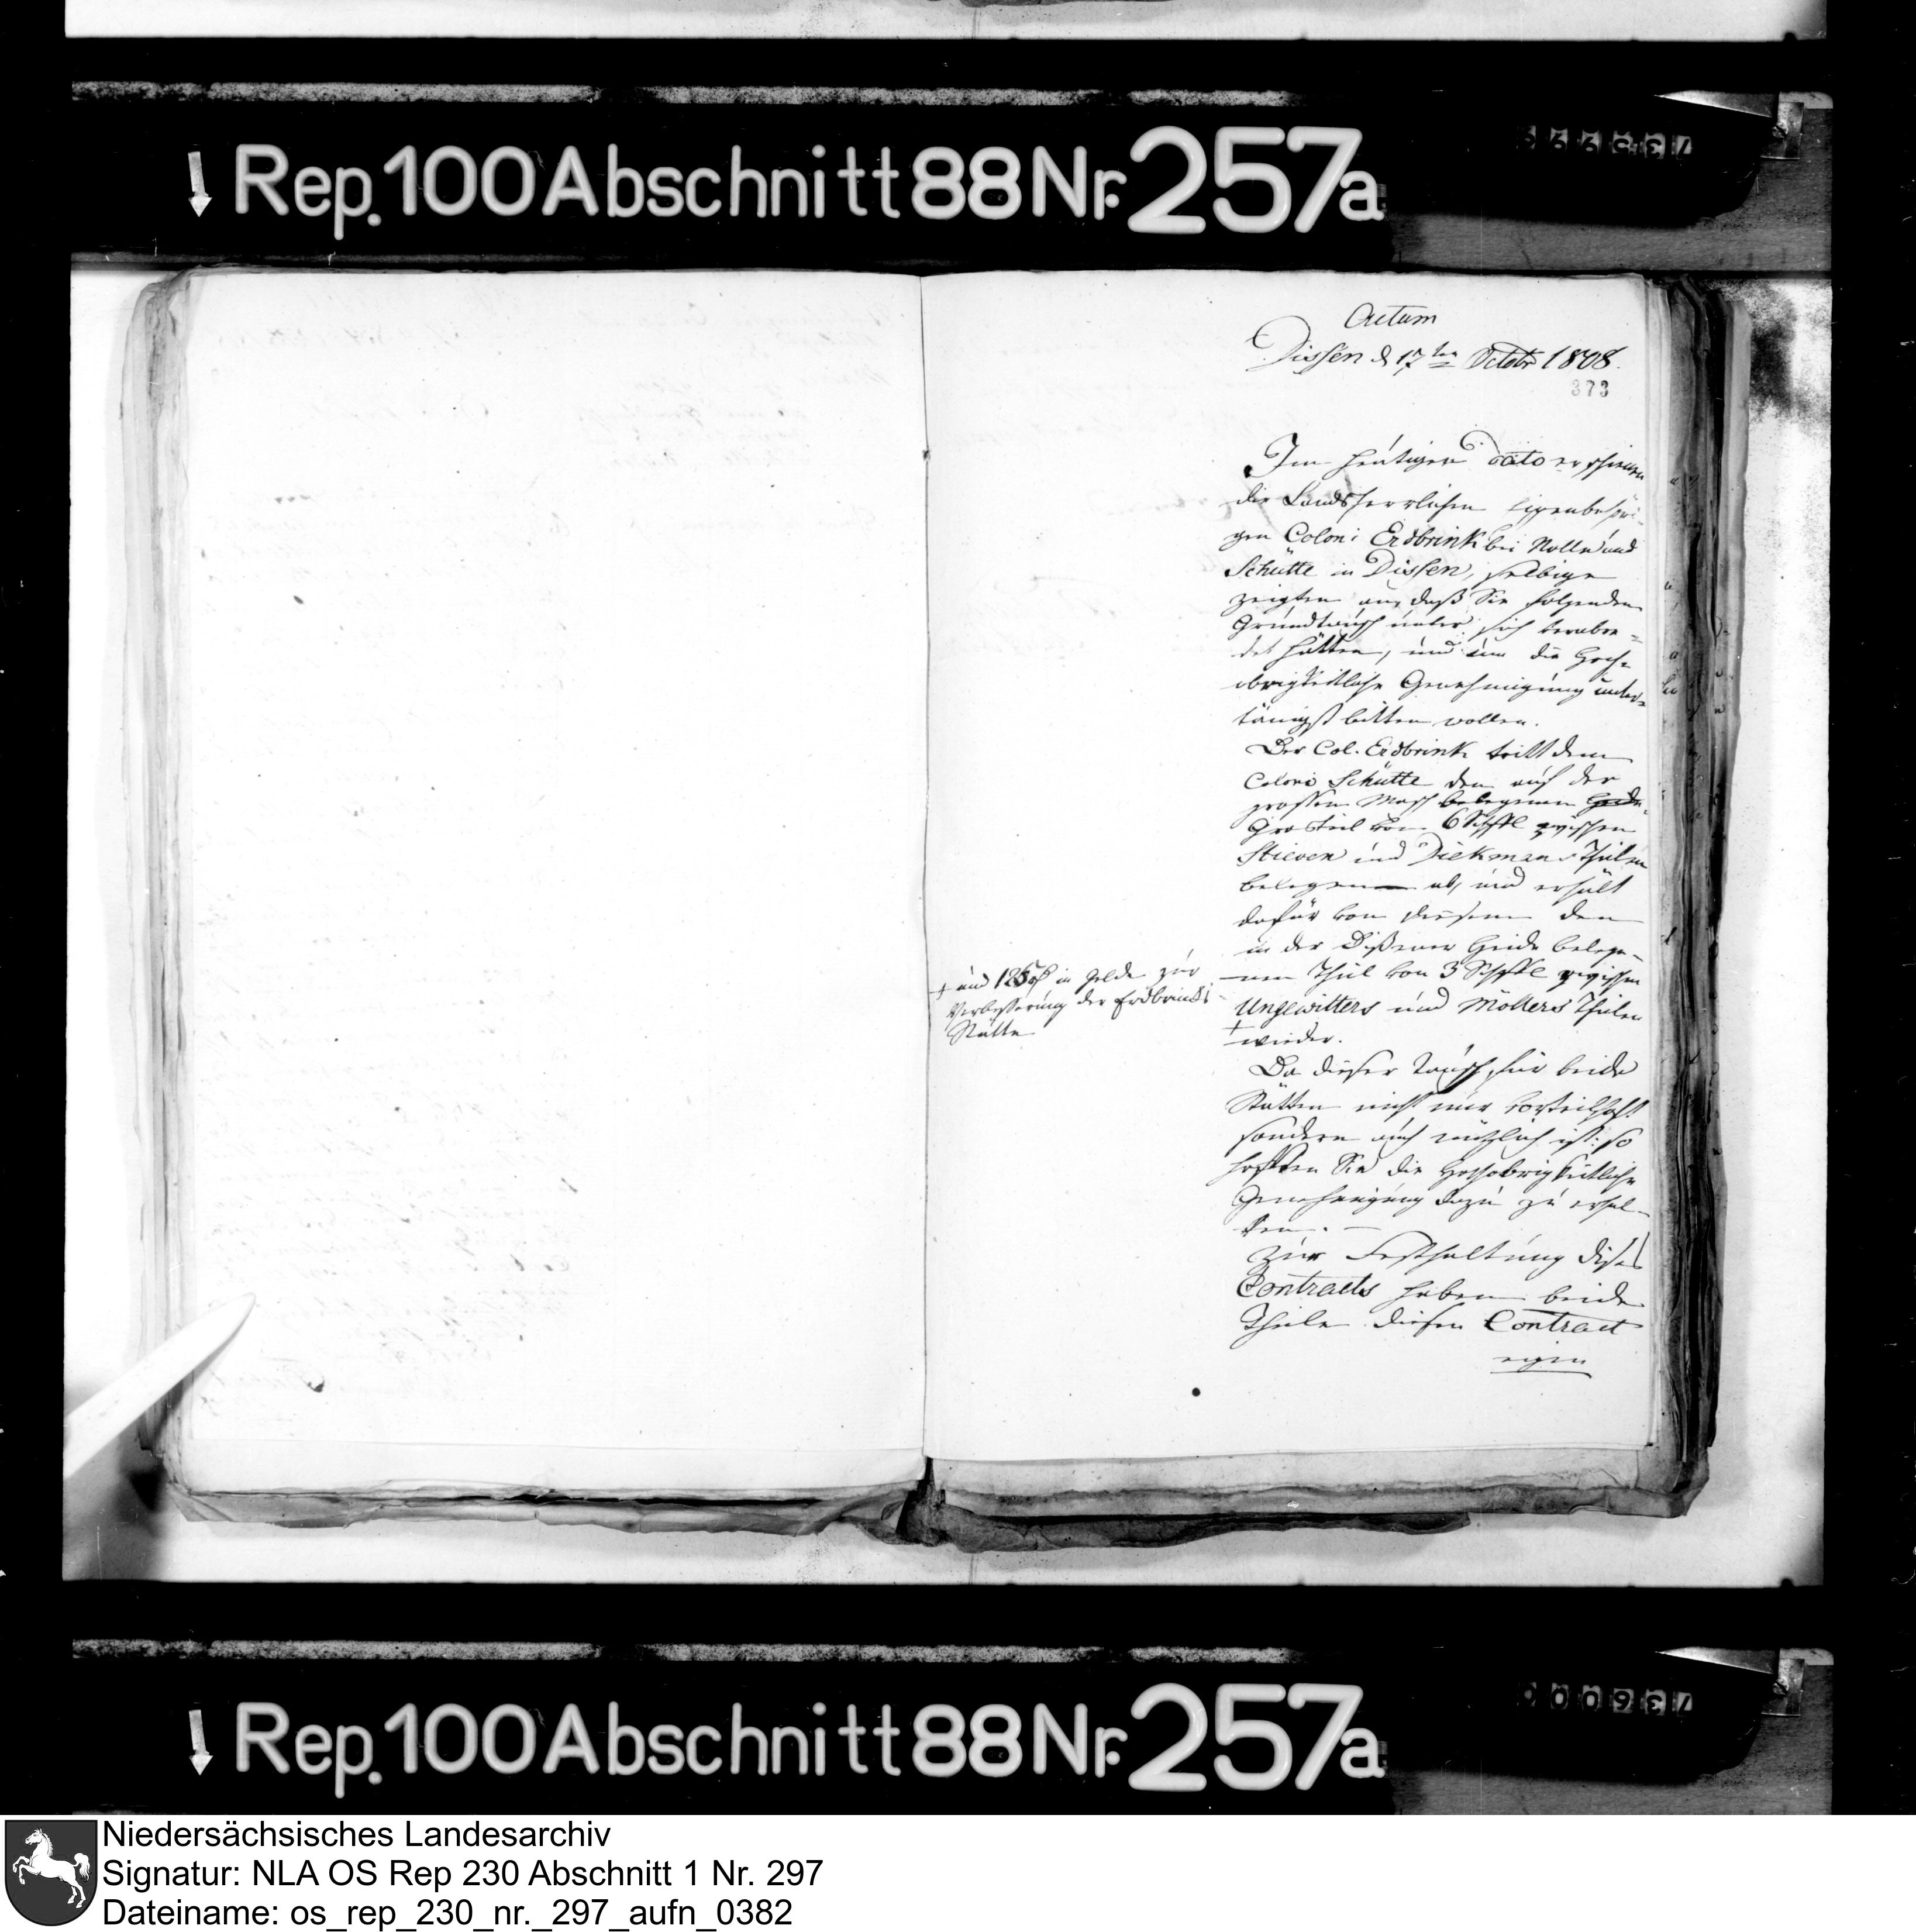 Rep. 100 Abschnitt 88 Nr. 257a
Actum
Dissen d 17ten Octobr 1808.
373
Im heutigen Dato erschienen
die Landsherrlichen Eigenbehöri-
gen Coloni Erdbrink bei Nolle und
Schütte in Dissen, selbige
zeigten an, daß Sie folgenden
Grundtausch unter sich verabre-
det hätten, und um die Hoch-
obrigkeitliche Genehmigung unter-
tänigst bitten wollen.
Der Col. Erdbrink tritt dem
Coloni Schütte den auf der
grossen Masch belegenen
von 6 Schffl zwischen
Stieven und Diekmans Theilen
belegenen ab, und erhält
dafür von diesem den
in der Dißener Heide belege-
nen Theil von 3 Schffl zwischen
Ungewitters und Möllers Theilen
+ wieder.
+ und 125 in Gelde zur
Verbesserung der Erdbrinks
Stätte
Da dieser Tausch für beide
Stätten nicht nur vorteilhaft
sondern auch nützlich ist: so
hofften Sie die Hochobrigkeitliche
Genehmigung dazu zu erhal-
ten. —
Zur Festhaltung dises
Contracts haben beide
Theile diesen Contract
eigen
Rep. 100 Abschnitt 88 Nr. 257a
Niedersächsisches Landesarchiv
Signatur: NLA OS Rep 230 Abschnitt 1 Nr. 297
Dateiname: os_rep_230_nr._297_aufn_0382